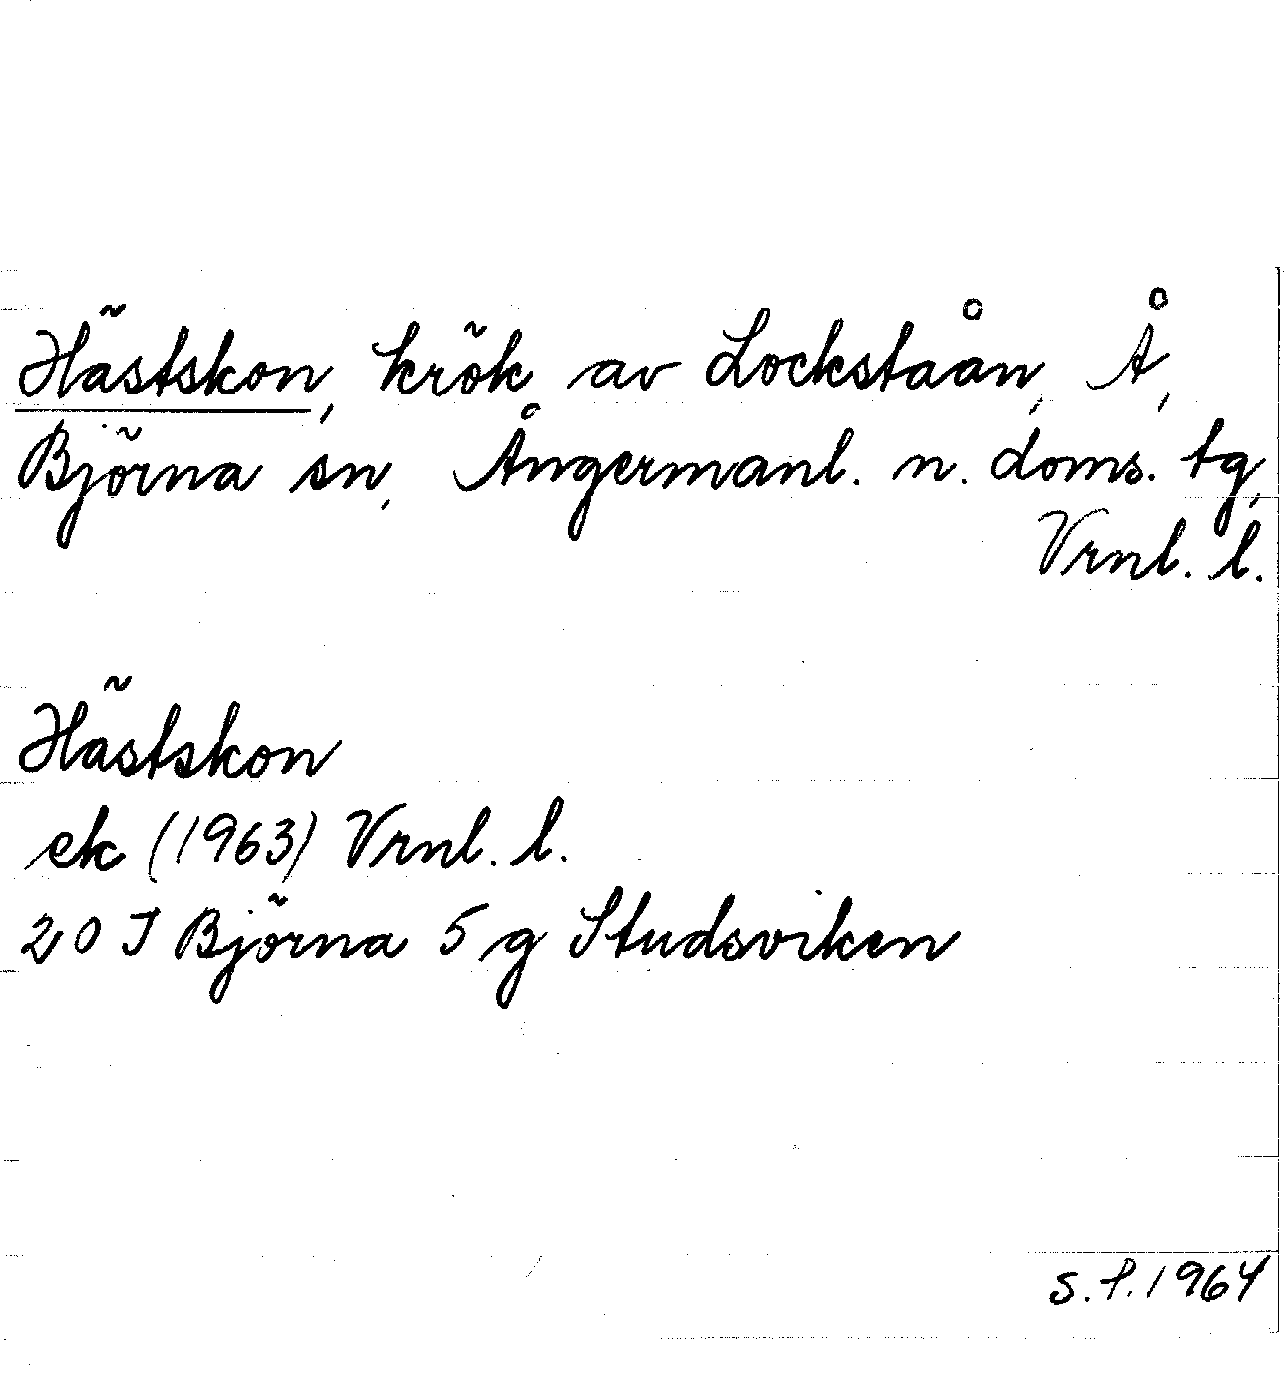 Hästskon, krök av Lockstaån, Å,
Björna sn, Ångermanl. n. doms. tg,
Vrnl. l.
Hästskon
ek (1963) Vrnl. l.
20 J Björna 5 g Studsviken
S. P. 1964